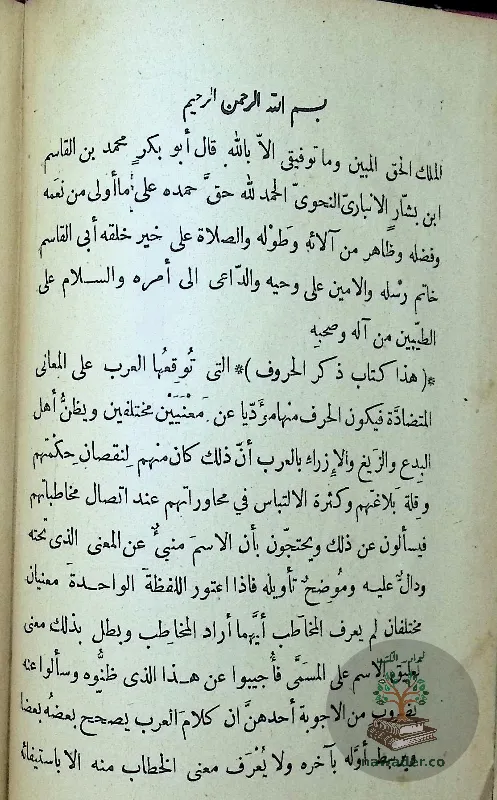 بسم الله الرحمن الرحيم
الملك الحق المبين وما توفيقى الاّ بالله قال أبو بكرٍ محمد بن القاسم
ابن بشّارٍ الانبارىّ النحوىّ الحمد لله حقّ حمده على ما أولى من نعمه
وفضله وظاهر من آلائهِ وطَوْله والصلاة على خير خلقه أبى القاسم
خاتم رسْله والامين على وحيه والدّاعى الى أمره والسـلام على
الطيّبين من آله وصحبهِ
*(هذا كتاب ذكر الحروف)* التى تُوقِعُها العرب على المعانى
المتضادَّة فيكون الحرف منها مؤدّيا عن مَعْنَيَيْن مختلفين ويظنُّ أهل
البِدع والزَيغِ والإزراءِ بالعرب أنّ ذلك كان منهم لِنقصانِ حِكْمتهم
وقِلة بلاغتهم وكثرة الالتباس في محاوراتهم عند اتصال مخاطباتهم
فيسألون عن ذلك ويحتجّون بأن الاسمَ منبئٌ عن المعنى الذى تحته
ودالٌّ عليه ومُوضحٌ تأويله فاذا اعتور اللفظةَ الواحـدةَ معنيان
مختلفان لم يعرف المخاطَب أيَّهما أراد المخاطِب وبطل بذلك معنى
تعليق الاسم على المسمَّى فأُجيبوا عن هـذا الذى ظنُّوه وسألوا عنه
بضروب من الاجوبة أحدهنّ ان كلامَ العرب يَصحح بعضهُ بعضا
ويرتبط أوّله بآخره ولا يُعْرَف معنى الخطاب منه الا باستيفائه
maktader.co